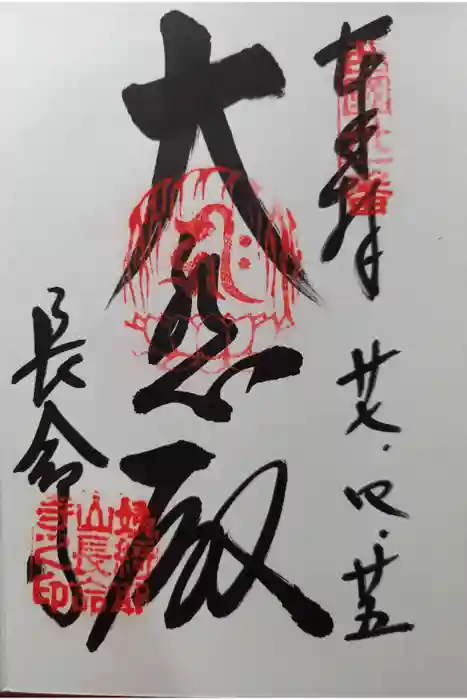 奉拝
西國三十一番
廿七・四・廿五
大悲殿
長命
姨綺耶
山長命
寺之印